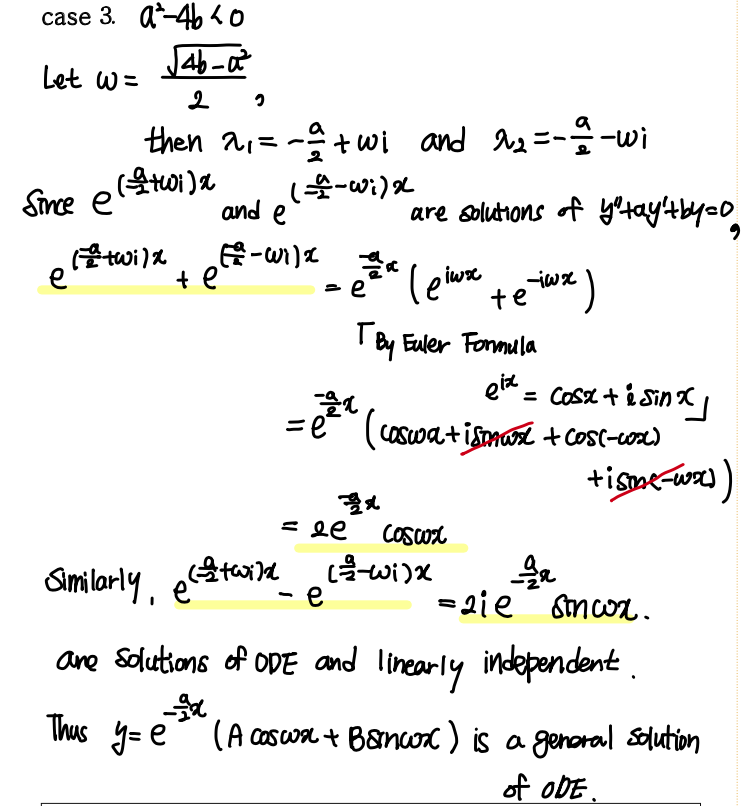 case 3. a²-4b<0
Let ω = √(4b-a²)/2 ,
then λ₁ = -a/2 + ωi and λ₂ = -a/2 - ωi
Since e^(-a/2+ωi)x and e^(-a/2-ωi)x are solutions of y''+ay'+by=0,
e^(-a/2+ωi)x + e^(-a/2-ωi)x = e^(-a/2 x) (e^iωx + e^-iωx)
「By Euler Formula
e^ix = cosx + i sinx」
= e^(-a/2 x) (cosωx + isinωx + cos(-ωx)
+ isin(-ωx))
= 2e^(-a/2 x) cosωx
Similarly, e^(-a/2+ωi)x - e^(-a/2-ωi)x = 2i e^(-a/2 x) sinωx.
are solutions of ODE and linearly independent.
Thus y= e^(-a/2 x) (A cosωx + B sinωx) is a general solution
of ODE.